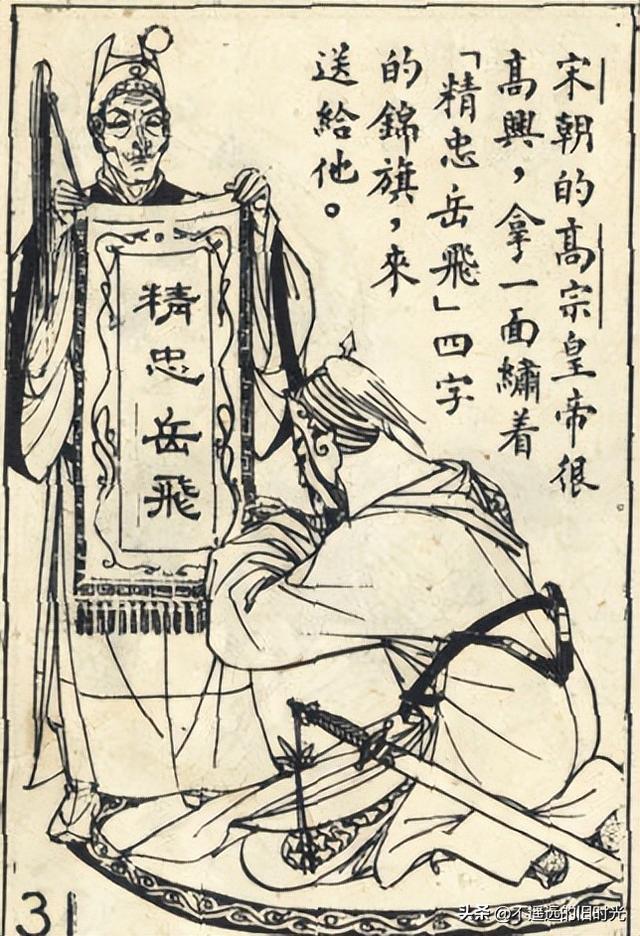 宋朝的高宗皇帝很
高興，拿一面繡着
「精忠岳飛」四字
的錦旗，來
送給他。
精忠岳飛
31
头条 @不遥远的旧时光